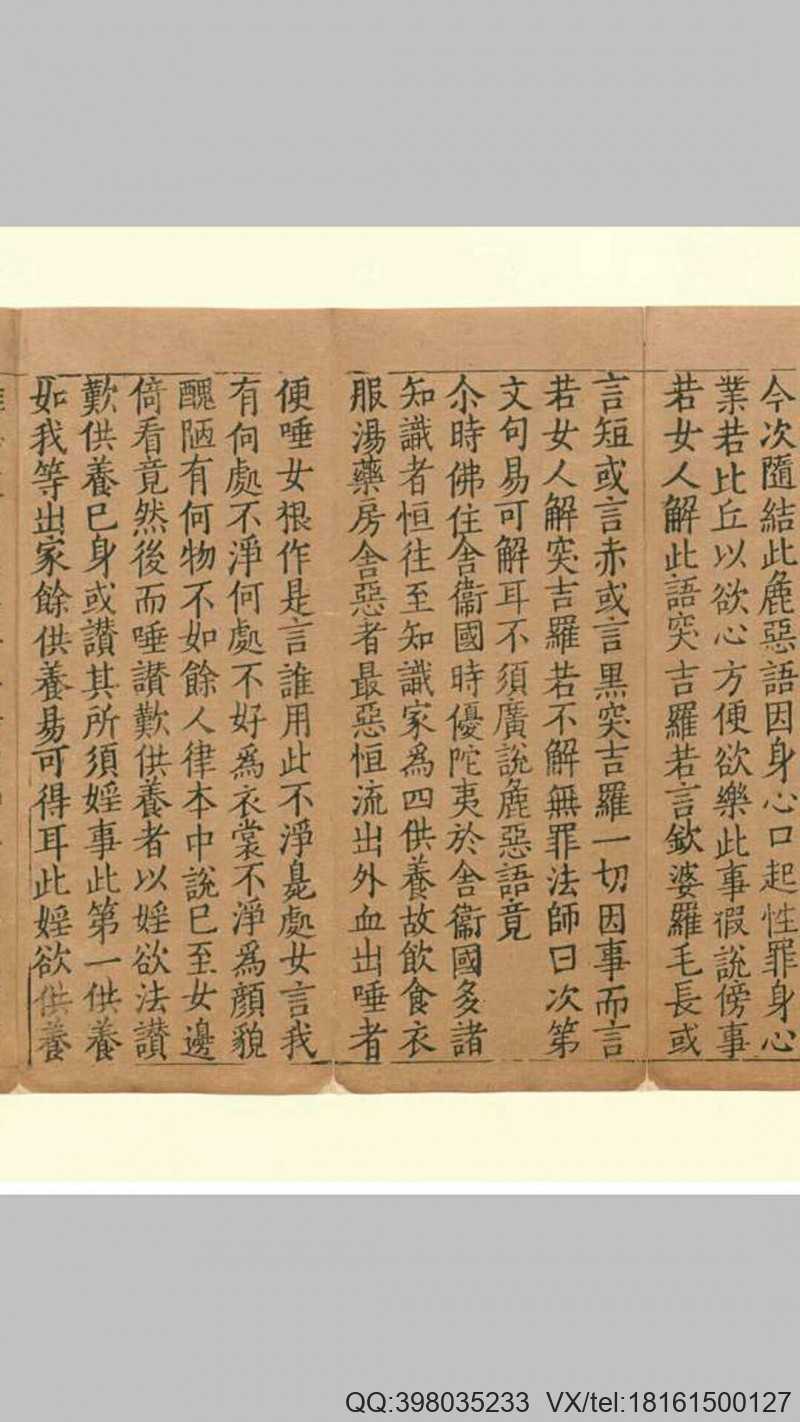 今次隨結此麁惡語因身心口起性罪身心
業若比丘以欲心方便欲樂此事假說傍事
若女人解此語突吉羅若言欽婆羅毛長或
言短或言赤或言黑突吉羅一切因事而言
若女人解突吉羅若不解無罪法師曰次第
文句易可解耳不須廣說麁惡語竟
尒時佛住舍衞國時優陀夷於舍衞國多諸
知識者恒往至知識家為四供養故飲食衣
服湯藥房舍惡者最惡恒流出外血出唾者
便唾女根作是言誰用此不淨㚖處女言我
有何處不淨何處不好為衣裳不淨為顏貌
醜陋有何物不如餘人律本中說已至女邊
倚看竟然後而唾讃歎供養者以婬欲法讃
歎供養已身或讃其所須婬事此第一供養
如我等出家餘供養易可得耳此婬欲供養
QQ:398035233 VX/tel:18161500127